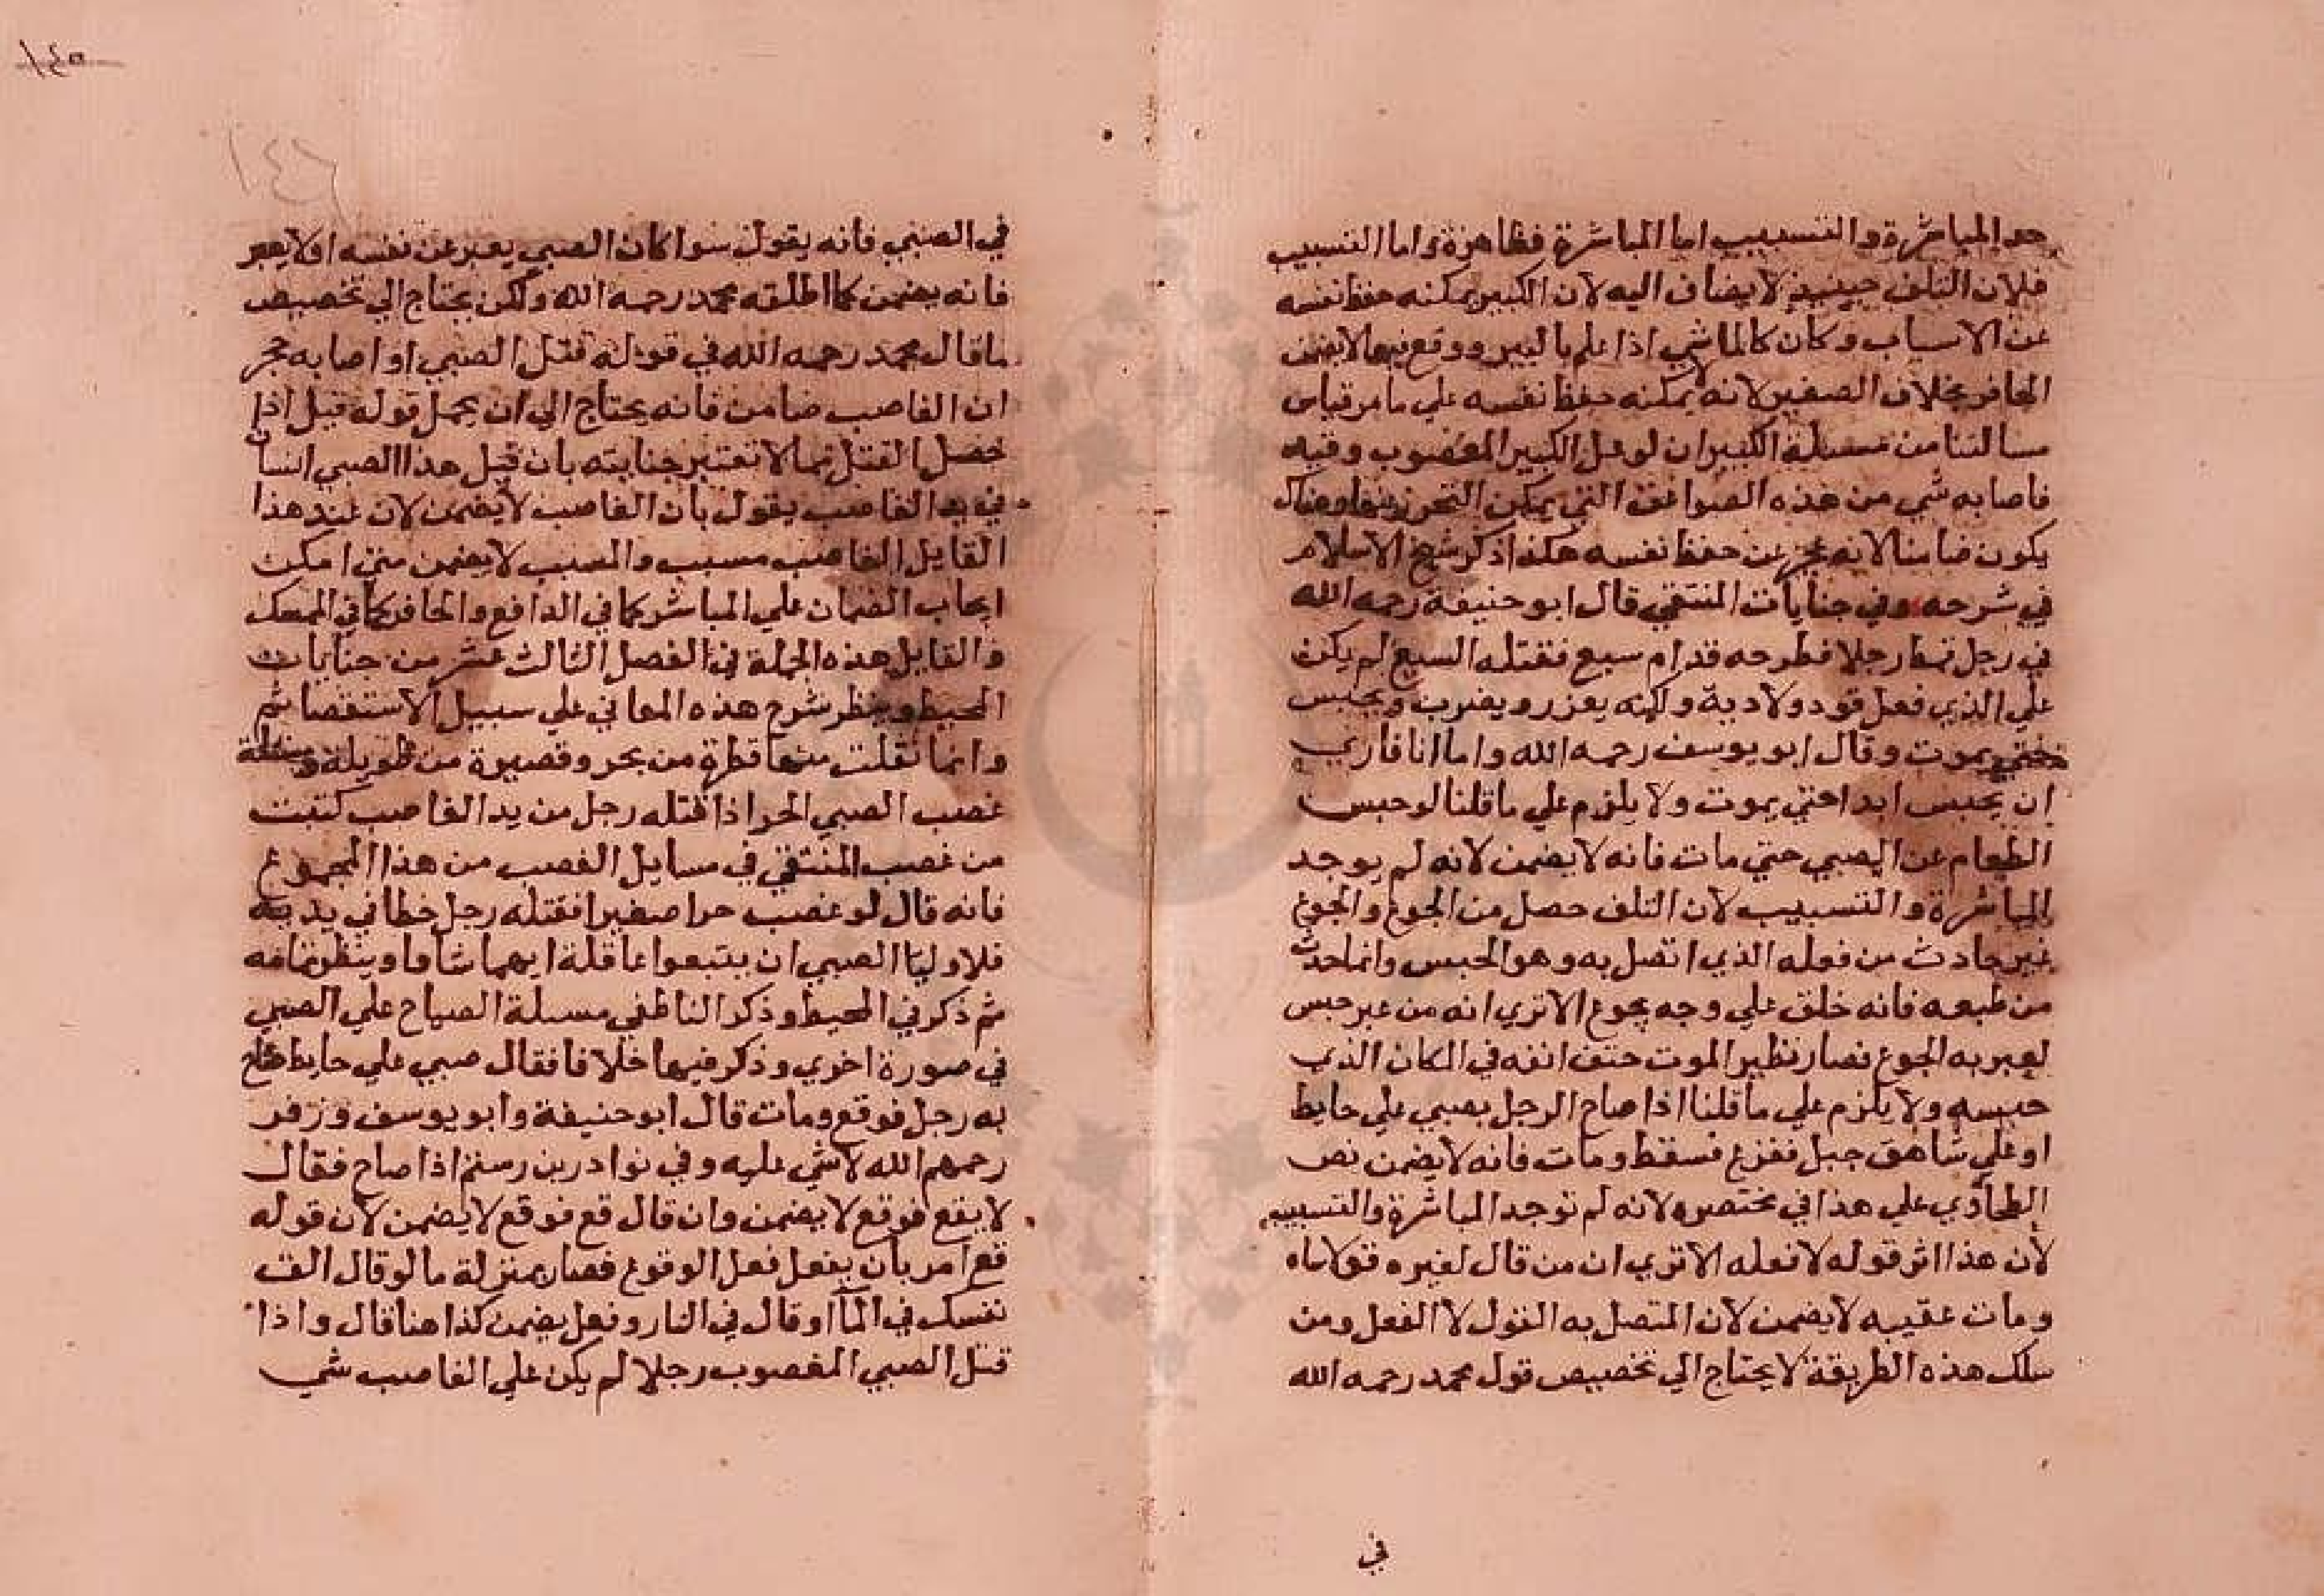 حد المباشرة والتسبيب اما المباشرة فظاهرة واما التسبيب
فلان التلف حينيذ لا يضاف اليه لان الكبير يمكنه حفظ نفسه
عن الاسباب وكان كالماشي اذا علم بالبير ووقع فيها لا يضمن
الحافر بخلاف الصغير لانه لا يمكنه حفظ نفسه علي ما مر قياس
مسالتنا من مسيلة الكبير ان لو الكبير المغصوب وقيد
فاصابه شي من هذه العوافق التي يمكن التحرز
يكون ضامنا لانه عجز عن حفظ نفسه هكذا ذكر شيخ الاسلام
في شرحه وفي جنايات المنتقي قال ابو حنيفة رحمه الله
في رجل قمط رجلا فطرحه قدام سبع فقتله السبع لم يكن
علي الذي فعل قود ولا دية ولكنه يعزر ويضرب ويحبس
حتي يموت وقال ابو يوسف رحمه الله واما انا فاري
ان يحبس ابدا حتي يموت ولا يلزم علي ما قلنا لو حبس
الطعام عن الصبي حتي مات فانه لا يضمن لانه لم يوجد
المباشرة والتسبيب لان التلف حصل من الجوع والجوع
غير حادث من فعله الذي اتصل به وهو الحبس وانما حدث
من طبعه فانه خلق علي وجه يجوع الا تري انه من غير حبس
به الجوع فصار نظير الموت حتف انفه في المكان الذي
حبسه ولا يلزم علي ما قلنا اذا صاح الرجل بصبي علي حايط
او علي شاهق جبل ففزع فسقط ومات فانه لا يضمن نص
الطحاوي علي هذا في مختصره لانه لم توجد المباشرة والتسبيب
لان هذا اثر قوله لا فعله الا تري ان من قال لغيره قولا ساه
ومات عقيبه لا يضمن لان المتصل به القول لا الفعل ومن
سلك هذه الطريقة لا يحتاج الي تخصيص قول محمد رحمه الله
في
١٤٥
١٤٦
في الصبي فانه يقول سوا كان الصبي يعبر عن نفسه او لا يعبر
فانه يضمن كما اطلقه محمد رحمه الله ولكن يحتاج الي تخصيص
ما قال محمد رحمه الله في قوله قتل الصبي او اصابه حجر
ان الغاصب ضامن فانه يحتاج الي ان يحمل قوله قتل اذا
حصل القتل بما لا تعتبر جنايته بان قتل هذا الصبي انسان
في يد الغاصب يقول بان الغاصب لا يضمن لان عند هذا
القايل الغاصب مسبب والمسبب لا يضمن متي امكن
ايجاب الضمان علي المباشر كما في الدافع والحافر كما في الممسك
والقايل هذه الجملة في الفصل الثالث عشر من جنايات
المحيط وينظر شرح هذه المعاني علي سبيل الاستقصا ثم
وانما نقلت منها قطرة من بحر وقصيرة من طويلة ومسيلة
غصب الصبي الحر اذا قتله رجل من يد الغاصب كتبت
من غصب المنتقي في مسايل الغصب من هذا المجموع
فانه قال لو غصب حرا صغيرا فقتله رجل خطا في يديه
فلاوليا الصبي ان يتبعوا عاقلة ايهما شاوا وينظر تمامه
ثم ذكر في المحيط وذكر الناطفي مسيلة الصياح علي الصبي
في صورة اخري وذكر فيها خلافا فقال صبي علي حايط صاح
به رجل فوقع ومات قال ابو حنيفة وابو يوسف وزفر
رحمهم الله لا شي عليه وفي نوادر بن رستم اذا صاح فقال
لا يقع فوقع لا يضمن وان قال قع فوقع لا يضمن لان قوله
قع امر بان يفعل فعل الوقوع فصار بمنزلة ما لو قال الق
نفسك في المآ او قال في النار وفعل يضمن كذا هنا قال واذا
قتل الصبي المغصوب رجلا لم يكن علي الغاصب شي